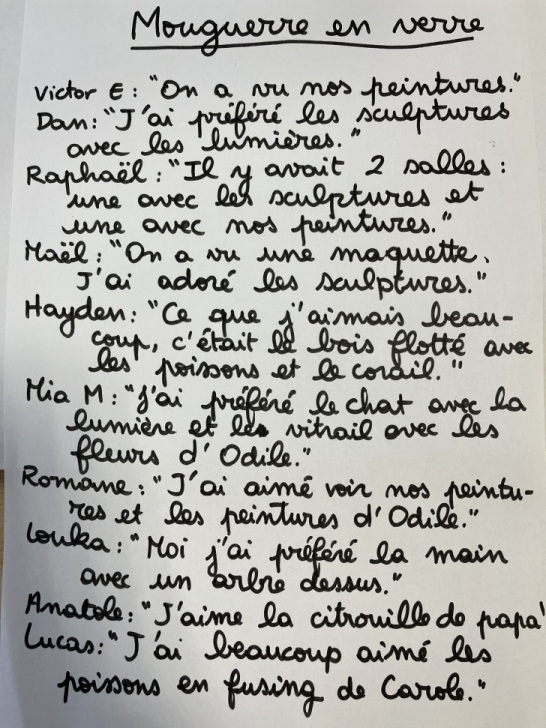 Mouguerre en verre
Victor E : "On a vu nos peintures."
Dan: "J'ai préféré les sculptures
avec les lumières."
Raphaël : "Il y avait 2 salles :
une avec les sculptures et
une avec nos peintures."
Maël : "On a vu une maquette.
J'ai adoré les sculptures."
Hayden: "Ce que j'aimais beau-
coup, c'était le bois flotté avec
les poissons et le corail."
Mia M : "J'ai préféré le chat avec la
lumière et les vitrail avec les
fleurs d'Odile."
Romane : "J'ai aimé voir nos peintu-
res et les peintures d'Odile."
Louka : "Moi j'ai préféré la main
avec un arbre dessus."
Anatole: "J'aime la citrouille de papa"
Lucas: "J'ai beaucoup aimé les
poissons en fusing de Carole."